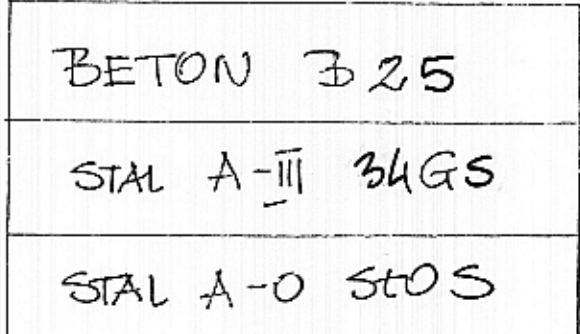 BETON B 25
STAL A-III 34GS
STAL A-0 StOS